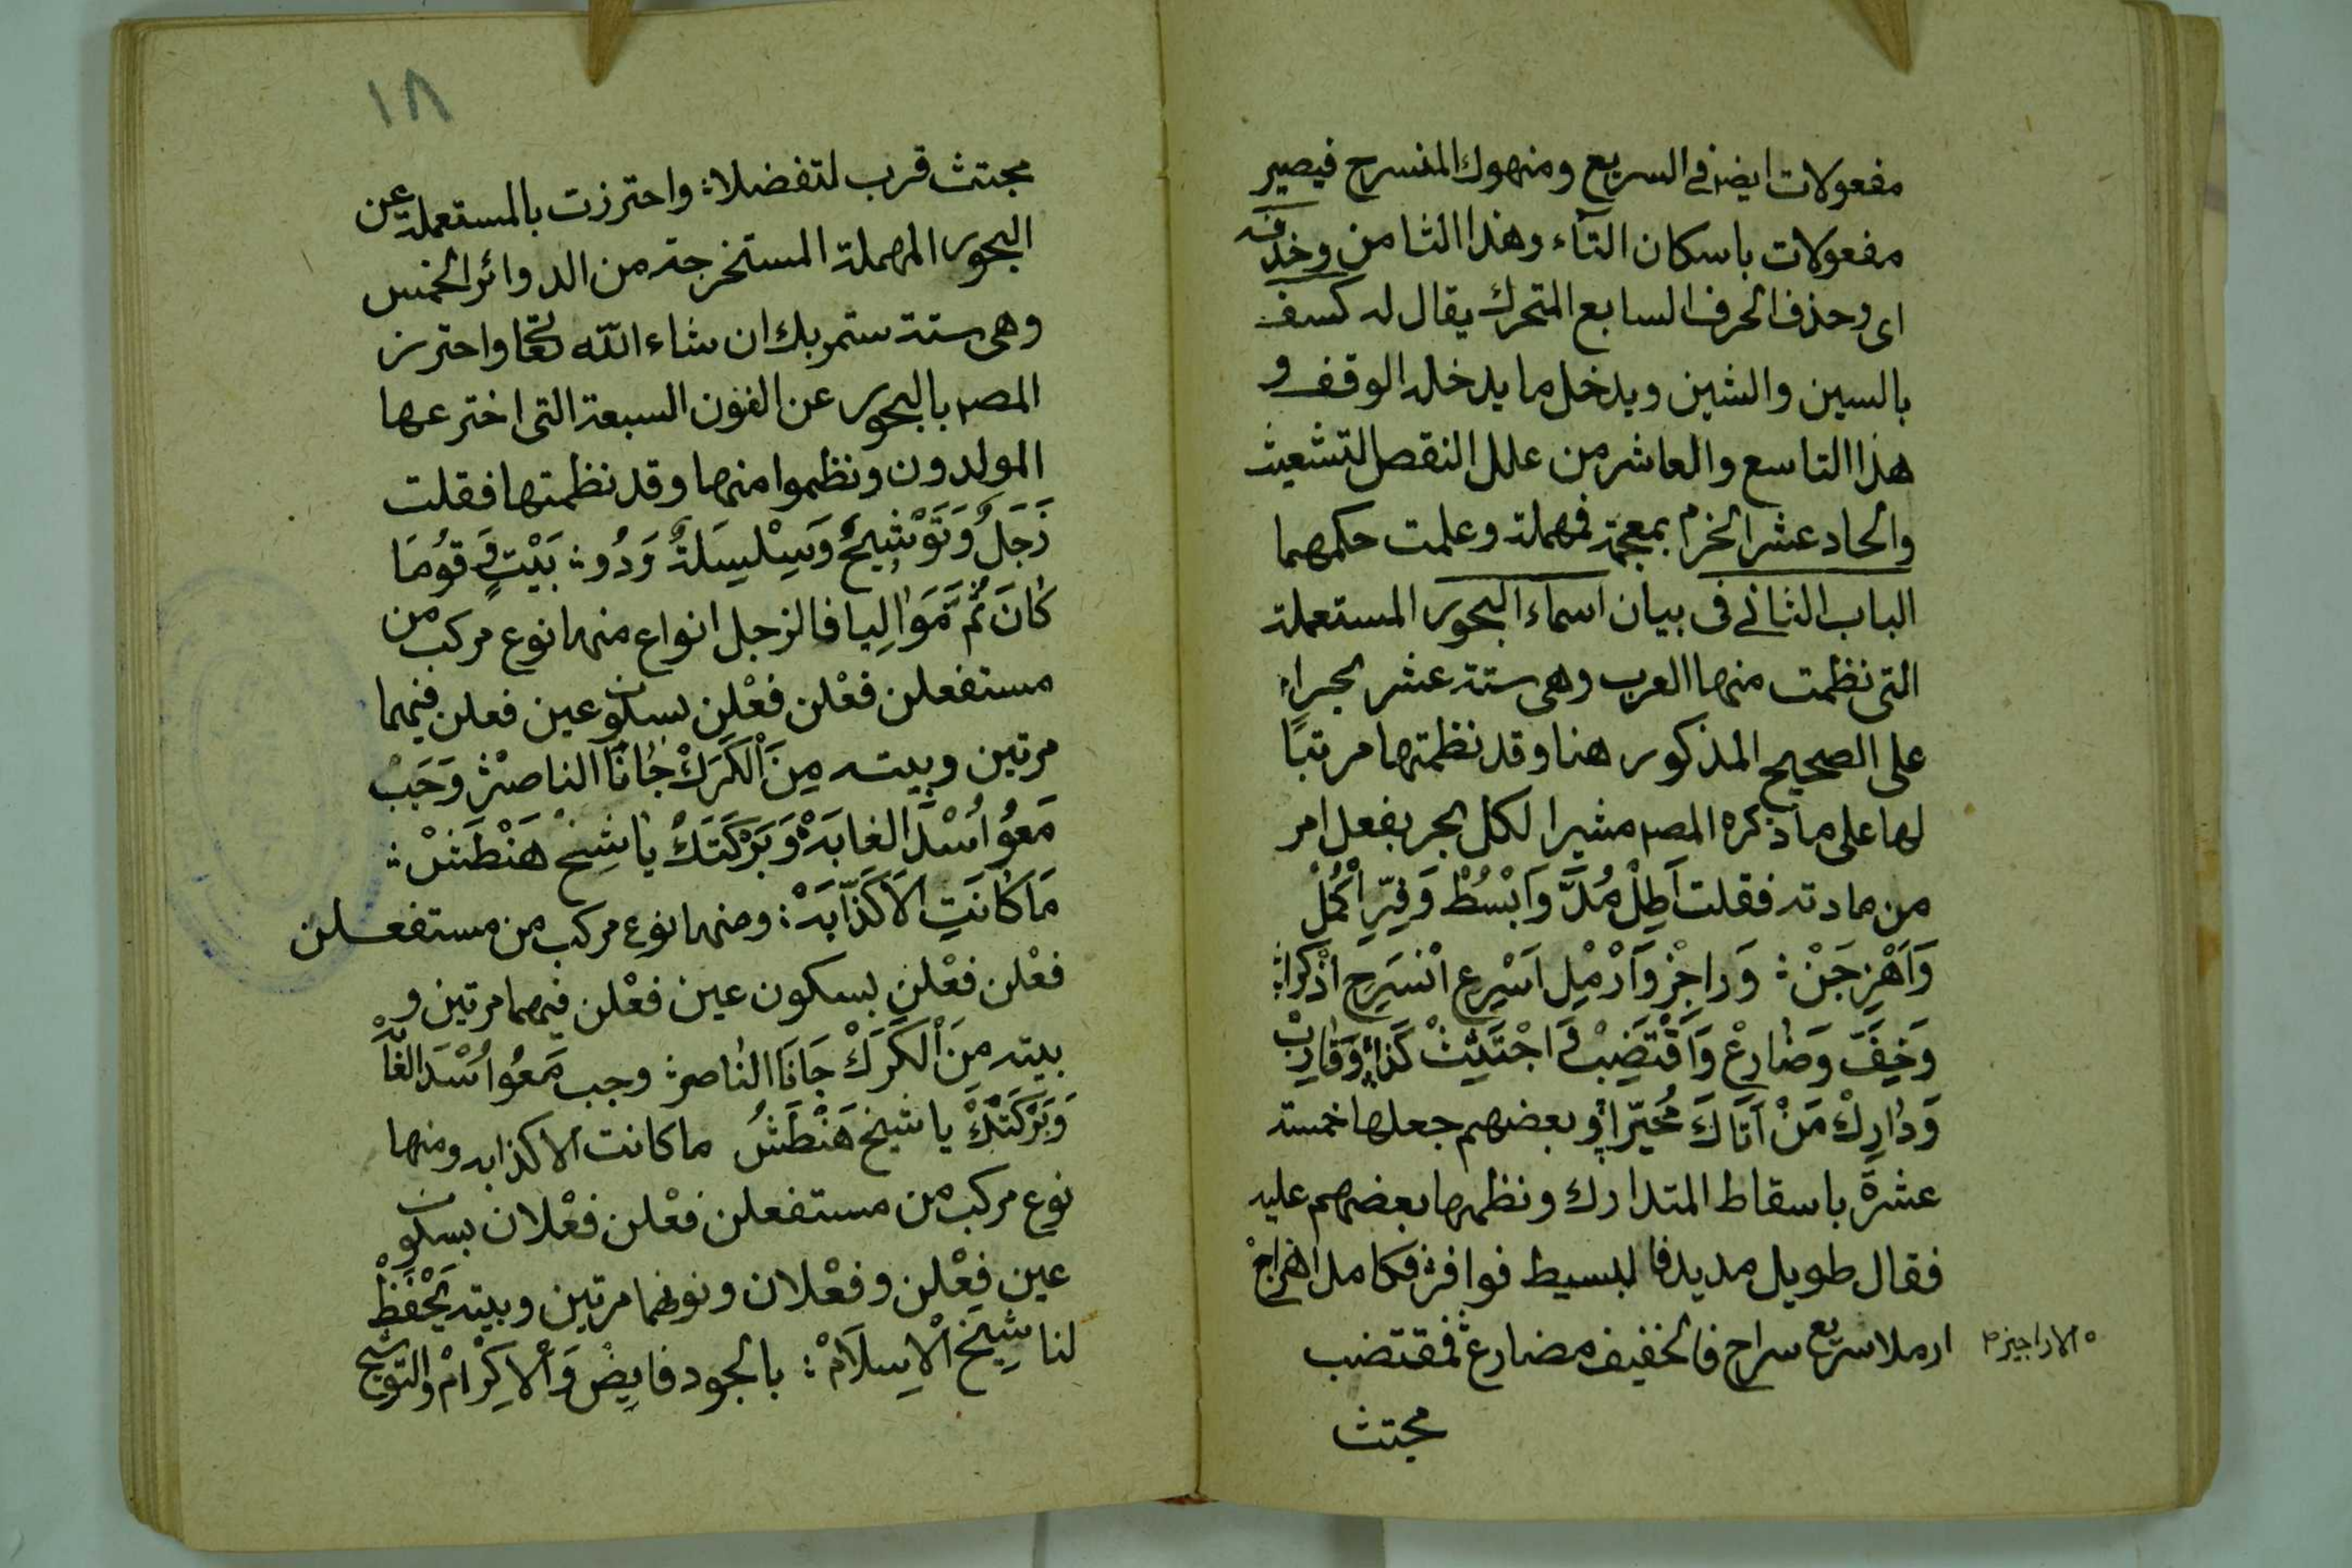 مفعولات ايضا في السريع ومنهوك المنسرح فيصير
مفعولات باسكان التآء وهذا الثامن وحذفه
اى وحذف الحرف السابع المتحرك يقال له كسف
بالسين والشين ويدخل ما يدخله الوقف و
هذا التاسع والعاشر من علل النقص التشعيث
والحاد عشر الخرم بمعجمة فمهملة وعلمت حكمهما
الباب الثانى فى بيان اسماء البحور المستعملة
التى نظمت منها العرب وهى ستة عشر بحراً
على الصحيح المذكور هنا وقد نظمتها مرتبًا
لها على ما ذكره المصـ مشيرا لكل بحر بفعل امر
من مادته فقلت اَطِلْ مُدَّ وَابْسُطْ وَفِّرِ اكْمُلْ
وَاَهْزِجَنْ : وَراجِزْ وَاَرْمِلْ اَسْرِعِ انْسَرِحِ اذْكُرا :
وَخِفَّ وَضٰارِعْ وَاَقْتَضِبْ وَ اجْتَثِثْ كَذا وَقٰارِبْ
وَدٰارِكْ مَنْ اَتَاكَ مُحَيَّرا وبعضهم جعلها خمسة
عشرة باسقاط المتدارك ونظمها بعضهم عليه
فقال طويل مديد فا لبسيط فوافر فكامل اهزاج
ارملا سريع سراح فالخفيف مضارع فمقتضب
الاراجيز م
مجتث
١٨
مجتث قرب لتفضلا : واحترزت بالمستعملة عن
البحور المهملة المستخرجة من الدوائر الخمس
وهى ستة ستمر بك ان شاء الله تعا واحترز
المصـ بالبحور عن الفنون السبعة التى اخترعها
المولدون ونظموا منها وقد نظمتها فقلت
زَجَلٌ وَتَوْشِيحٌ وَسِلْسِلَةٌ وَدُو : بَيْتٍ وَ قُومَا
كٰانَ ثُمَّ مَوٰالِيا فالزجل انواع منها نوع مركب من
مستفعلن فعْلن فعْلن بسكون عين فعلن فيهما
مرتين وبيته مِنَ الْكَرَكْ جٰانَا الناصرْ وَجَبْ
مَعُو اُسْدَ الغابَهْ وَبَرْكَتَكْ يٰا شِيخْ هَنْطَشْ :
مَا كٰانَتِ اِلاَ كَذَّابَهْ : ومنها نوع مركب من مستفعلن
فعْلن فعْلن بسكون عين فعْلن فيهما مرتين و
بيته مِنَ الْكَرَكْ جَانَا النٰاصر وجب مَعُو اُسْدَ الغابَهْ
وَبَرْكَتَكْ يا شيخ هَنْطَشُ ما كانت الا كذابه ومنها
نوع مركب من مستفعلن فعْلن فعْلان بسكون
عين فعْلن وفعْلان ونونهما مرتين وبيته يَحْفَظْ
لنا شِيْخَ الْاِسلاَمْ : بالجود فايِضْ وَالْاِكِرْامْ والتوشيح